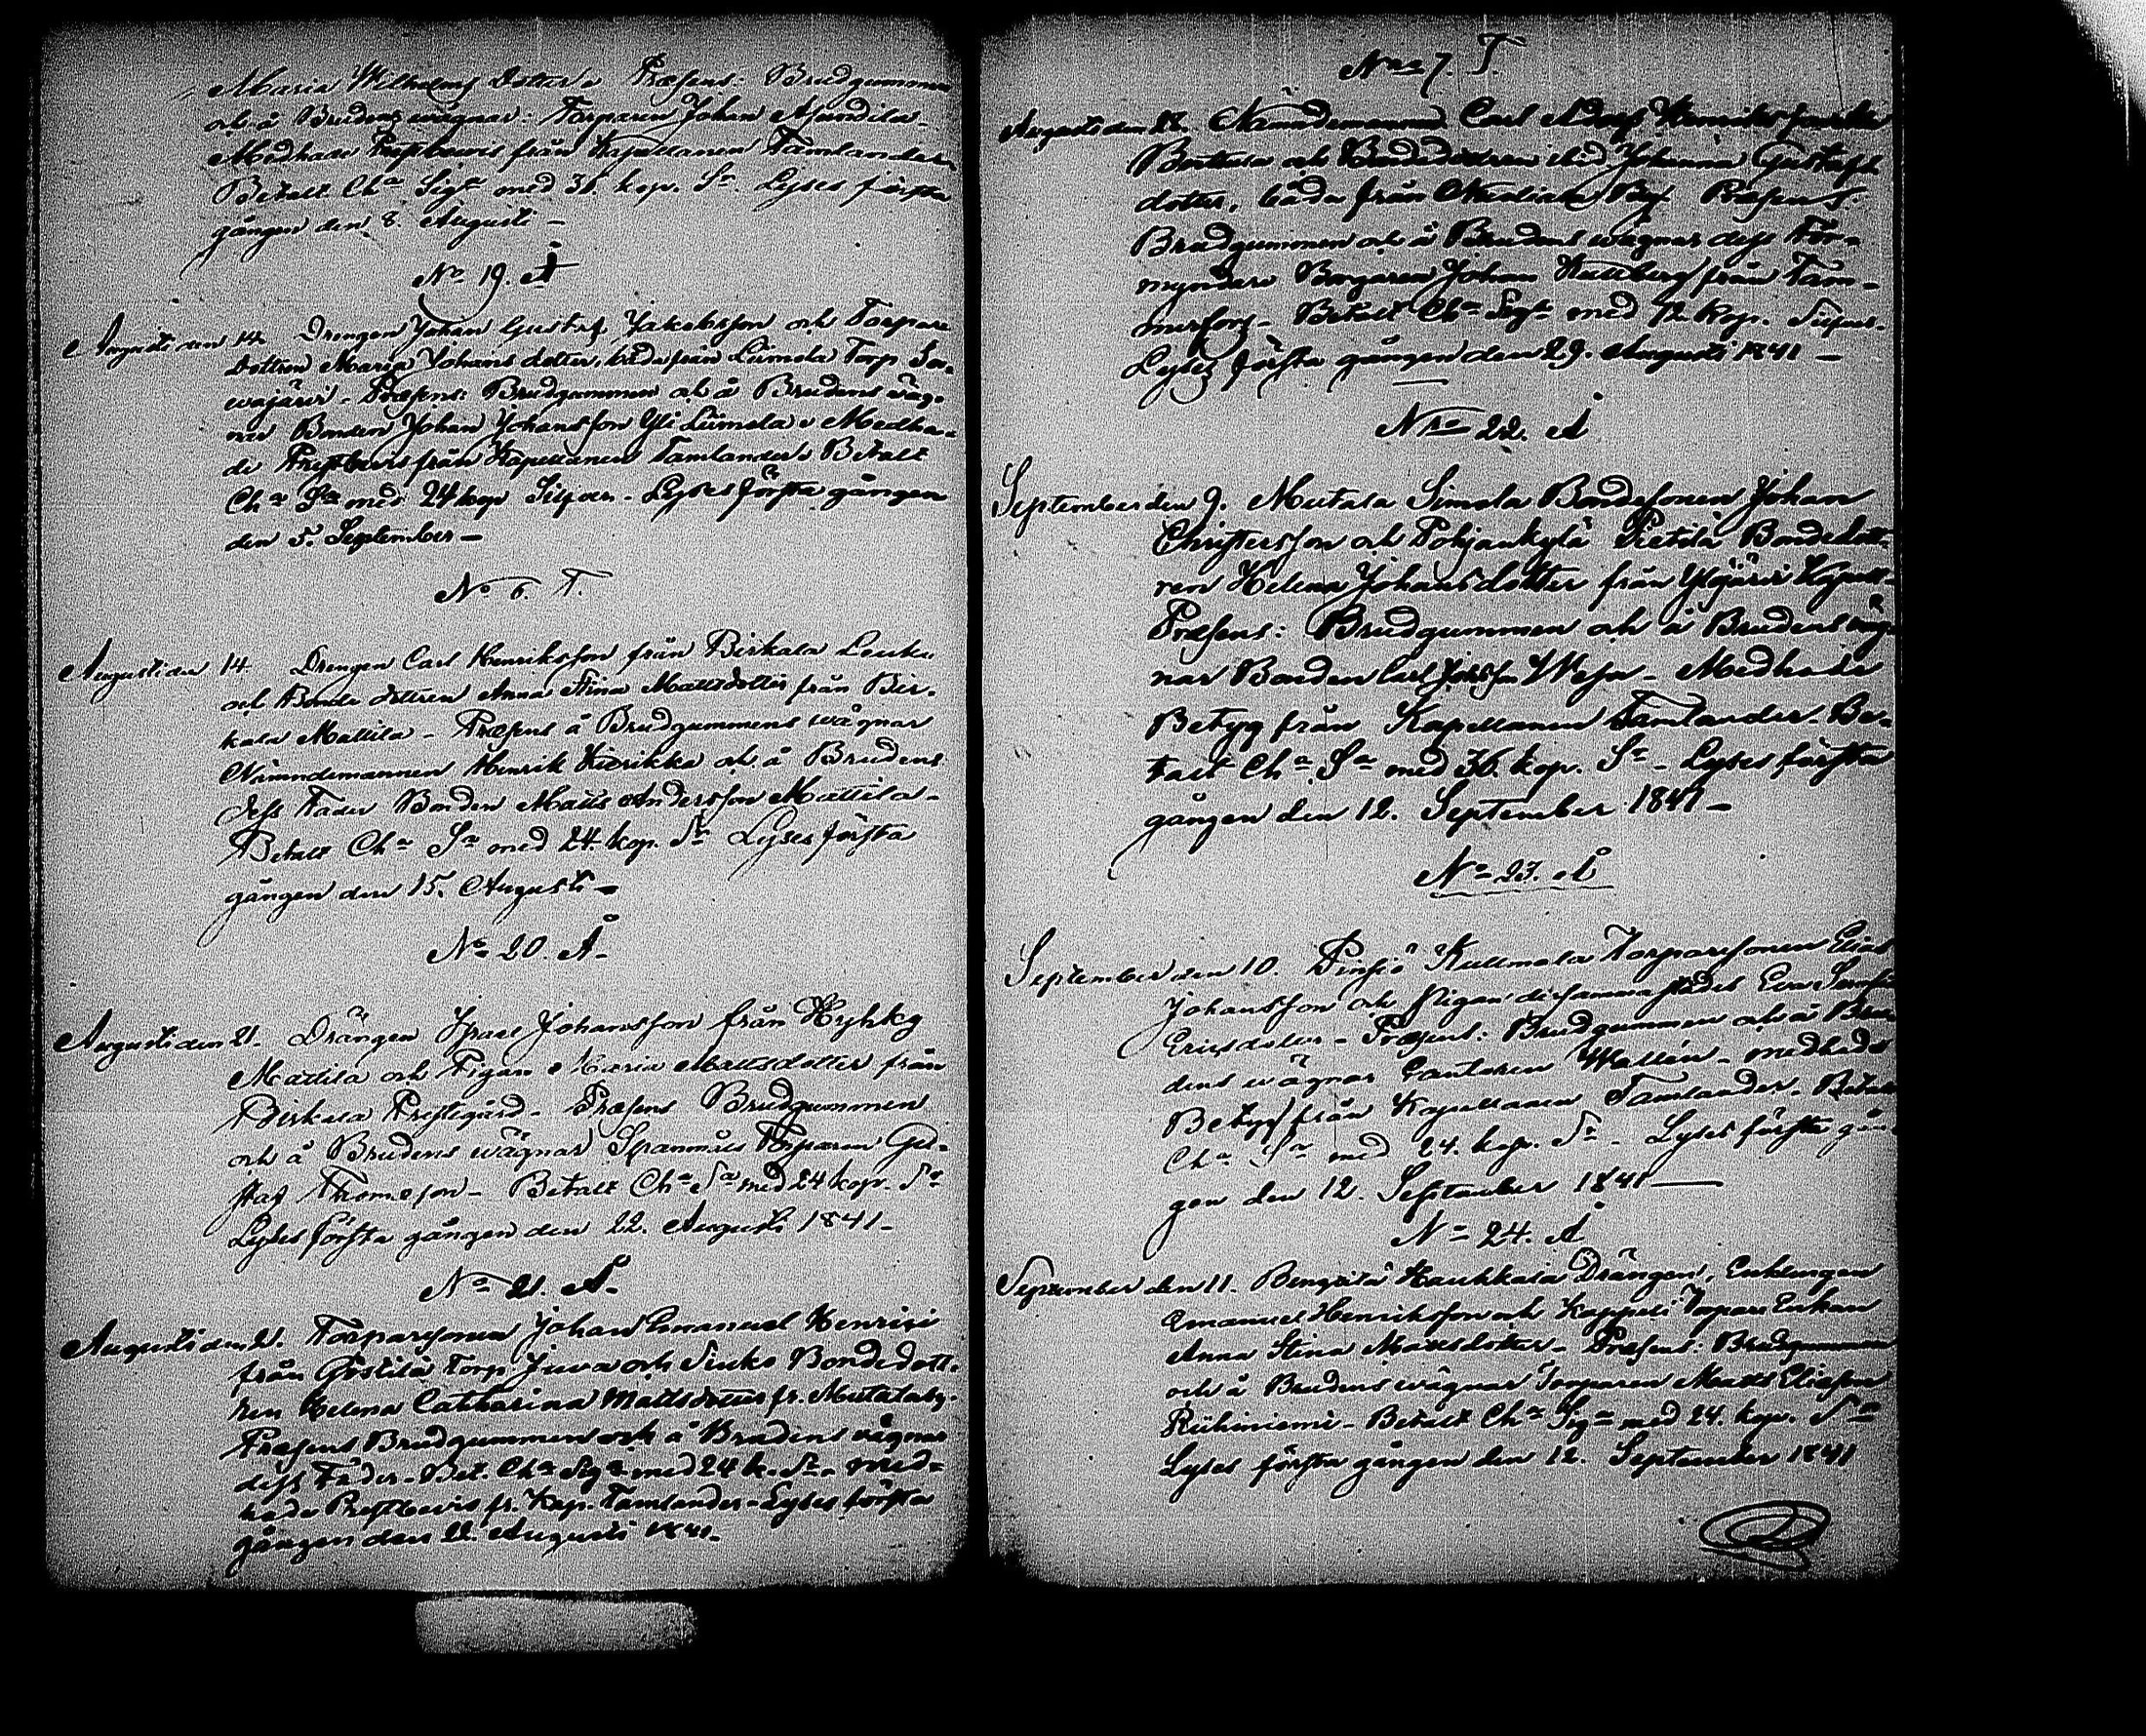 Maria Wilhelms Dotter. Præsens: Brudgummen
och å Brudens wägnar: Torparen Johan
Medhade Prestbewis från Kapellanen Tamlander
Betalt Cha Sigta med 36. kop. Sr. Lyses första
gången den 8. Augusti –
No 19. Å
Augusti den 14. Drengen Johan Gustaf Jakobsson och Torpare
dottren Maria Johans dotter, båda från Liimola Torp Sa-
wajärvi – Præsens: Brudgummen och å Brudens wäg-
nar Bonden Johan Johansson Yli Liimola. Medha-
de Prestbewis från Kapellanen Tamlander. Betalt
Cha Sa med 24 kop Silfver. Lyses första gången
den 5. September –
No 6. T.
Augusti den 14. Drengen Carl Henriksson från Birkala
och Bonde dottren Anna Stina Mattsdotter från Bir-
kala Mattila – Præsens å Brudgummens wägnar
Nämndemannen Henrik och å Brudens
dess Fader Bonden Matts Andersson Mattila –
Betalt Cha Sa med 24 kop. Sr Lyses första
gången den 15. Augusti –
No 20. Å.
Augusti den 21. Drängen Isaac Johansson från Hyhky
Mattila och Pigan Maria Mattsdotter från
Birkala Prestgård – Præsens Brudgummen
och å Brudens wägnar Torparen Gu-
staf Thomasson – Betalt Cha Sa med 24 kop. Sr
Lyses första gången den 22. Augusti 1841 –
No 21. Å.
Augusti den 21. Torparsonen Johan Emanuel Henrici
från Torp, och Bondedott-
ren Helena Catharina Mattsdotter fr.
Præsens Brudgummen och å Brudens wägnar
dess Fader – Bet. Cha Sigta med 24 k. Sr. med-
hade Prestbewis fr. Kap. Tamlander – Lyses första
gången den 22. Augusti 1841.
Nro 7. T.
Augusti den 28. Nämndemannen Carl Henriksson
och Bondedottren ibid Johanna Gustafs
dotter, båda från By. Præsens:
Brudgummen och å Brudens wägnar dess För-
myndare Borgaren Johan från Tam-
merfors – Betalt Cha Sigta med 72 kop. Silfver.
Lyses första gången den 29. Augusti 1841 –
Nro 22. Å
September den 9. Mutala Simola Bondesonen Johan
Christersson och Pohjankylä Pietilä Bondedott-
ren Helena Johansdotter från Ylöjärvi
Præsens: Brudgummen och å Brudens wäg-
nar Bonden Carl – Medhade
Betyg från Kapellanen Tamlander. Be-
talt Cha Sa med 36. kop. Sr – Lyses första
gången den 12. September 1841 –
No 23. Å
September den 10. Pinsiö Kullmala Torparsonen Elias
Johansson och Pigan, dersammastädes Eva
Ericsdotter – Præsens: Brudgummen och å Bru-
dens wägnar Cantoren Wallén – medhade
Betyg från Kapellanen Tamlander – Betalt
Cha Sa med 24. kop. Sr – Lyses första gån-
gen den 12. September 1841 –
No 24. Å
September den 11. Drängen, Enklingen
Emanuel Henriksson och Torpare Enkan
Anna Stina Mattsdotter – Præsens: Brudgummen
och å Brudens wägnar Torparen Matts Eliasson
Riihiniemi – Betalt Cha Sigta med 24. kop. Sr
Lyses första gången den 12. September 1841